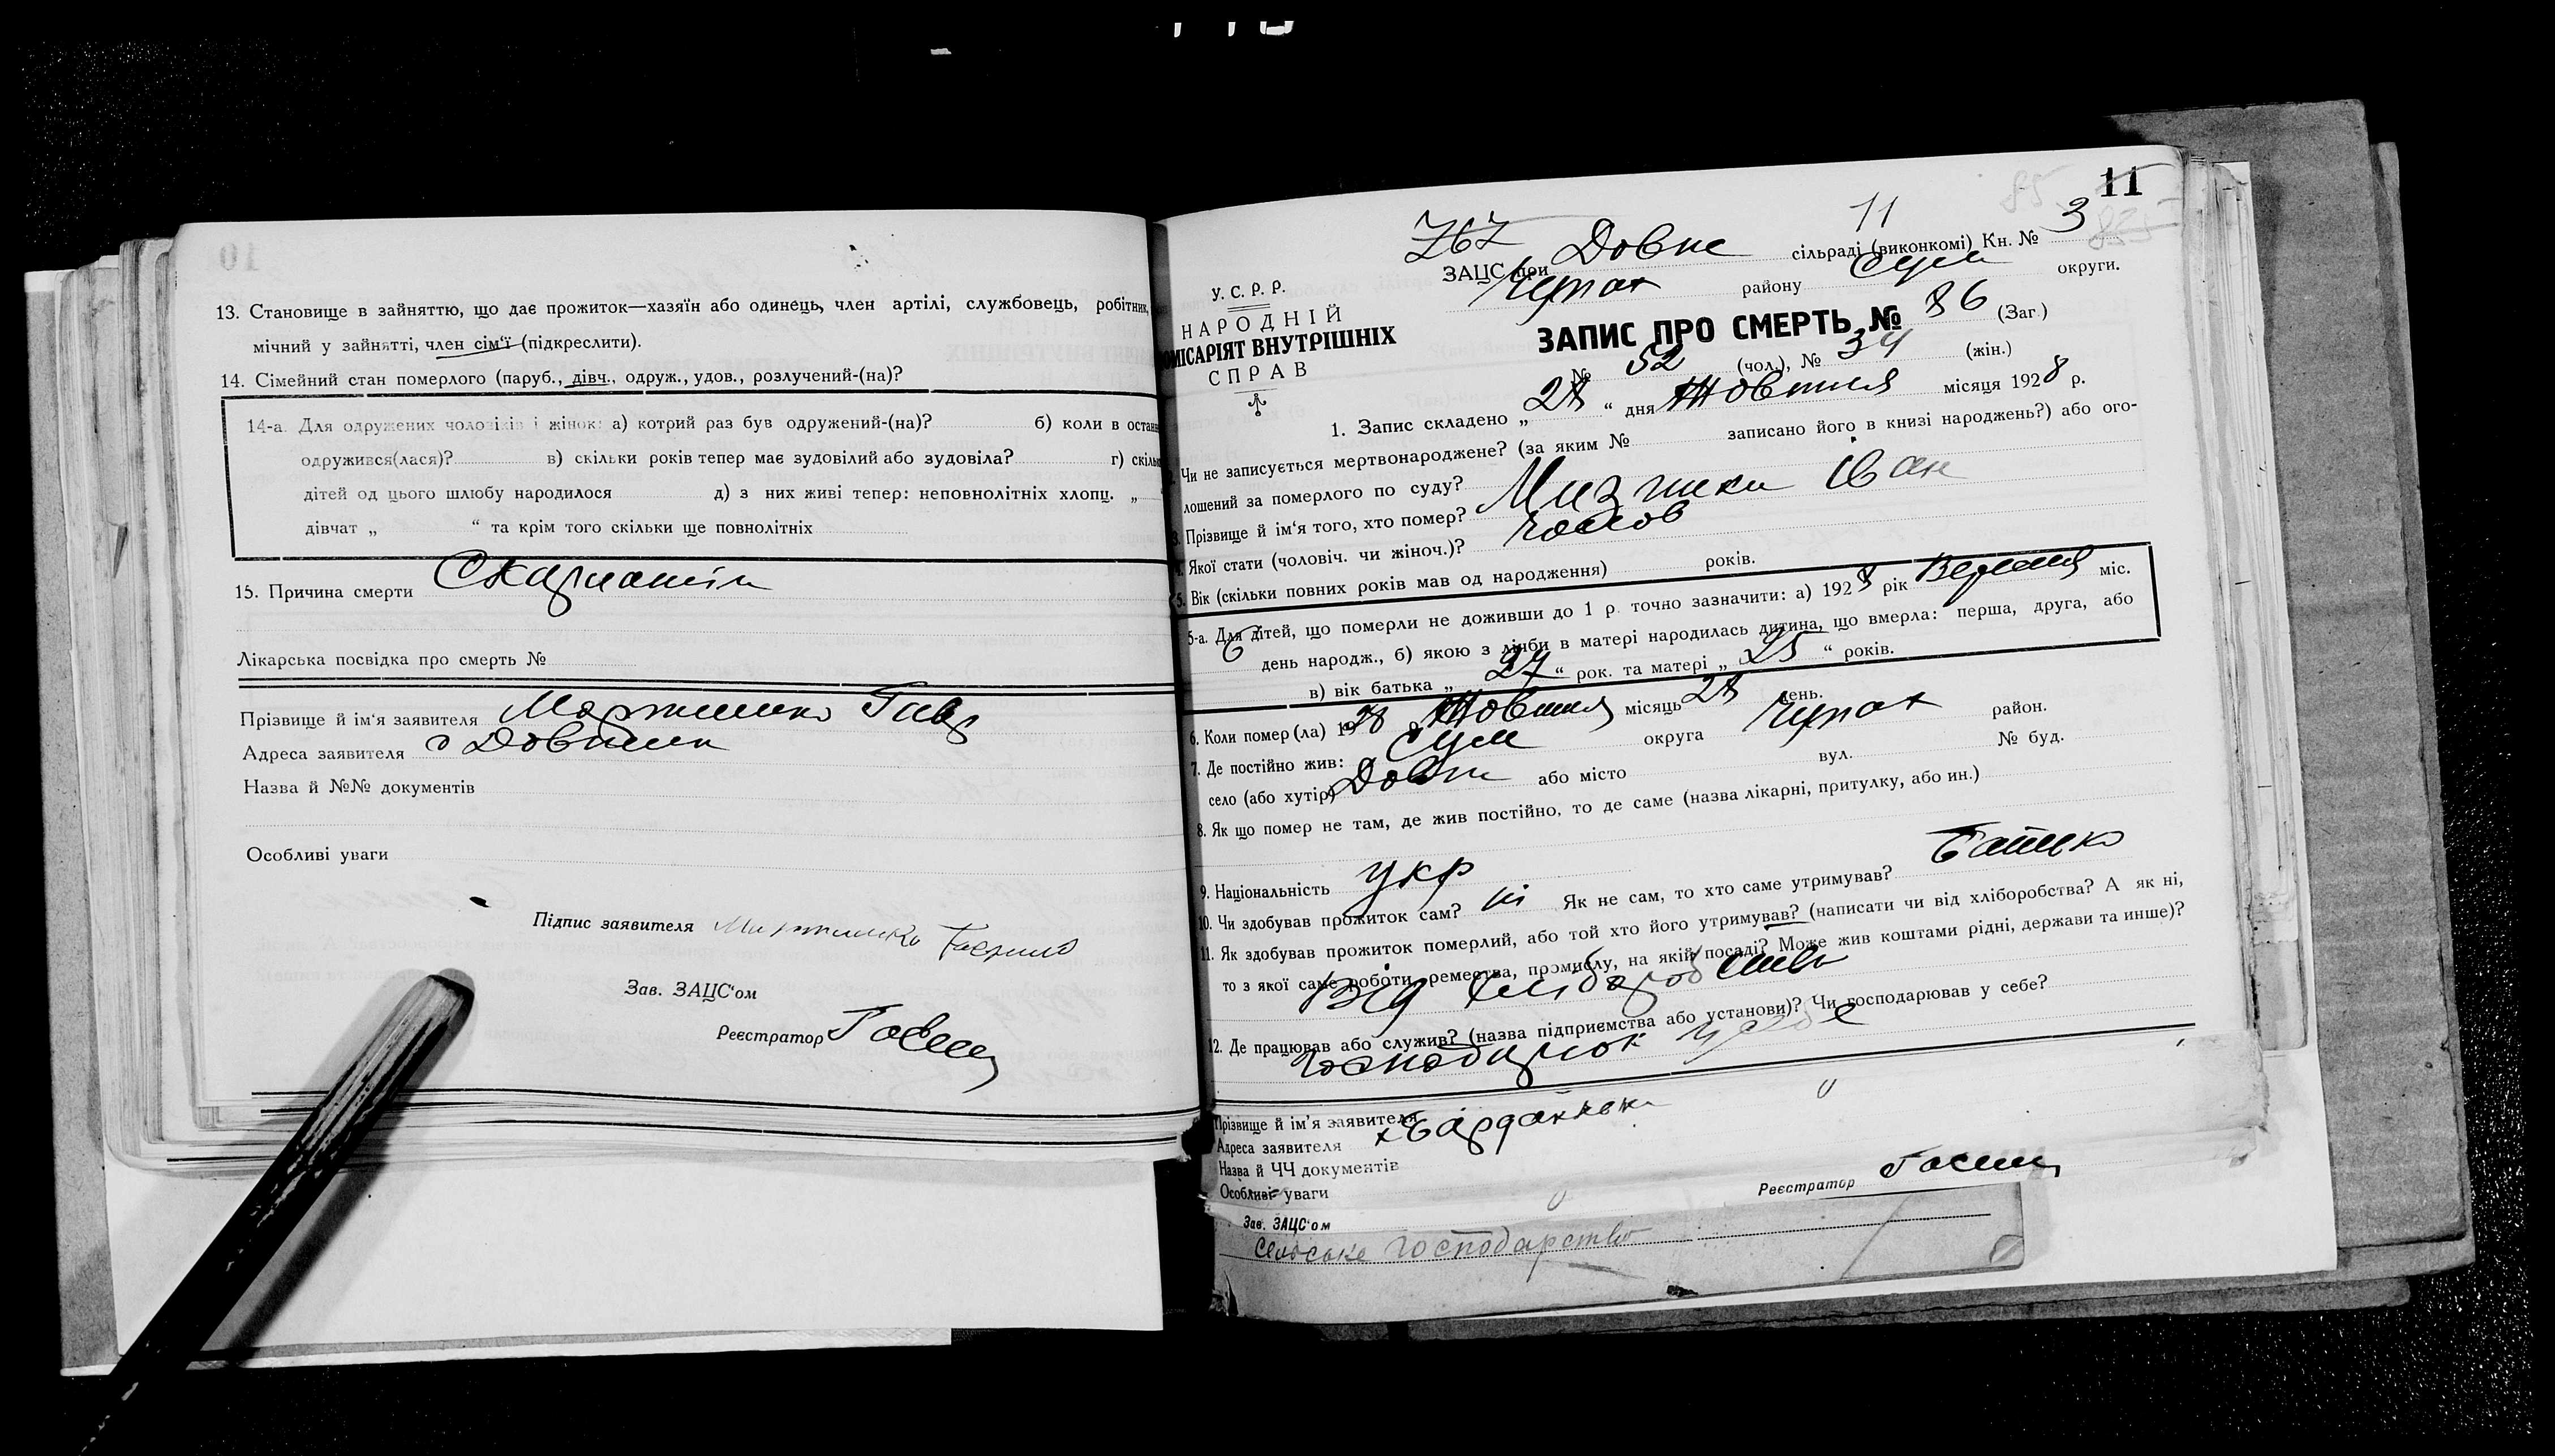 13. Становище в зайняттю, що дає прожиток—хазяїн або одинець, член артілі, службовець, робітник,
мічний у зайнятті, член сім'ї (підкреслити).
14. Сімейний стан померлого (паруб., дівч., одруж., удов., розлучений-(на)?
14-а. Для одружених чоловіків і жінок: а) котрий раз був одружений-(на)? б) коли в остан
одружився(лася)? в) скільки років тепер має зудовілий або зудовіла? г) скіль
дітей од цього шлюбу народилося д) з них живі тепер: неповнолітніх хлопц. „
дівчат „ “ та крім того скільки ще повнолітніх
15. Причина смерти Скарлатін
Лікарська посвідка про смерть №
Прізвище й ім'я заявителя Гавр
Адреса заявителя
Назва й №№ документів
Особливі уваги
Підпис заявителя
Зав. ЗАЦС'ом
Реєстратор
11
767 11
ЗАЦС при Довже сільраді (виконкомі) Кн. № 3
Чупах району Сум округи.
У. С. Р. Р.
НАРОДНІЙ
ОМІСАРІЯТ ВНУТРІШНІХ
СПРАВ
ЗАПИС ПРО СМЕРТЬ № 86 (Заг.)
№ 52 (чол.), № 34 (жін.)
1. Запис складено „ 28 “ дня Жовтня місяця 1928 р.
2. Чи не записується мертвонароджене? (за яким № записано його в книзі народжень?) або ого-
лошений за померлого по суду?
3. Прізвище й ім'я того, хто помер? Іван
4. Якої стати (чоловіч. чи жіноч.)? Чолов
5. Вік (скільки повних років мав од народження) років.
5-а. Для дітей, що померли не доживши до 1 р. точно зазначити: а) 1928 рік Вересня міс.
6 день народж., б) якою з лічби в матері народилась дитина, що вмерла: перша, друга, або
в) вік батька „ 27 “ рок. та матері „ 25 “ років.
6. Коли помер(ла) 1928 р. Жовтня місяць 28 день.
7. Де постійно жив: Сум округа Чупах район.
село (або хутір) Довж або місто вул. № буд.
8. Як що помер не там, де жив постійно, то де саме (назва лікарні, притулку, або ин.)
9. Національність укр
10. Чи здобував прожиток сам? ні Як не сам, то хто саме утримував? Батько
11. Як здобував прожиток померлий, або той хто його утримував? (написати чи від хліборобства? А як ні,
то з якої саме роботи, ремества, промислу, на якій посаді? Може жив коштами рідні, держави та инше)?
Від хліборобства
12. Де працював або служив? (назва підприємства або установи)? Чи господарював у себе?
у себе
Прізвище й ім'я заявителя
Адреса заявителя х Бардаківка
Назва й ЧЧ документів
Особливі уваги
Реєстратор
Зав. ЗАЦС'ом
сельське господарство